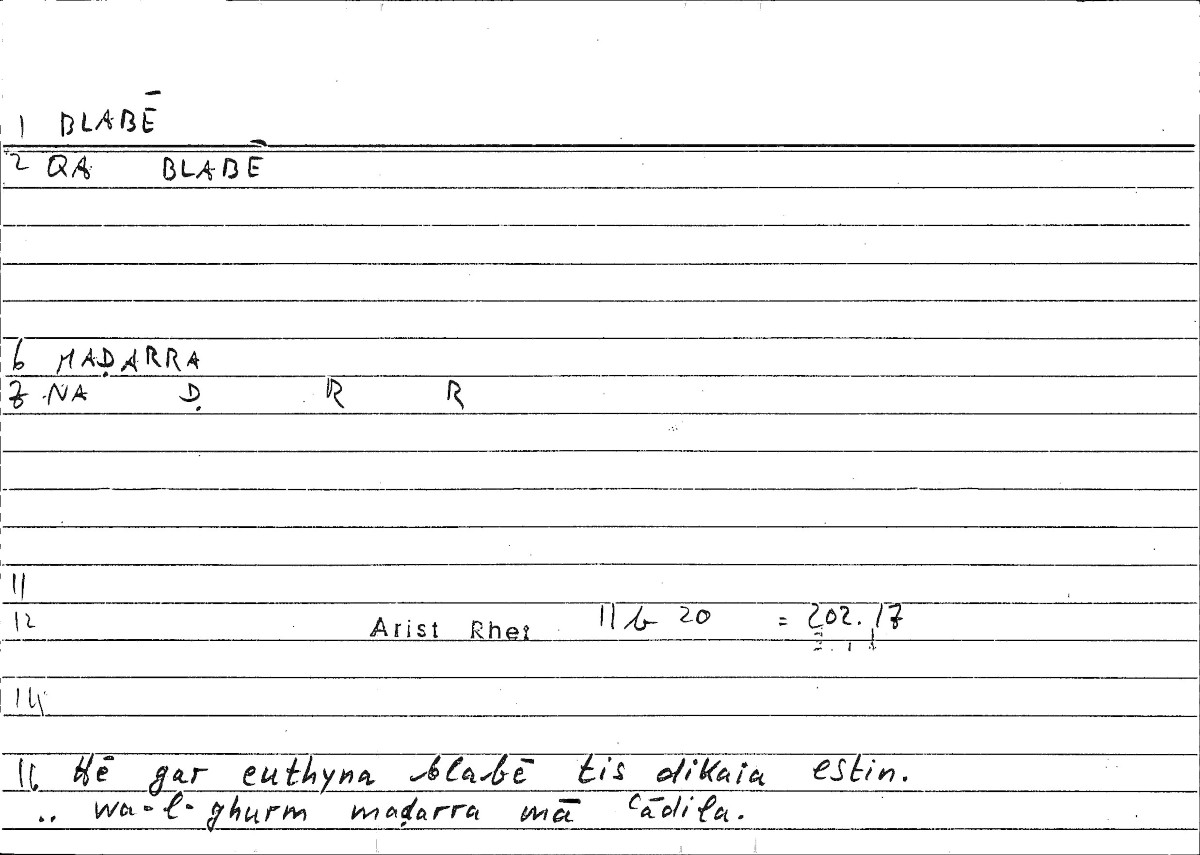 1 BLABĒ
2 QA BLABĒ
6 MAḌARRA
7 NA Ḍ R R
11
12 Arist Rhet 11 b 20 = 202.17
14
16 Hē gar euthyna blabē tis dikaia estin.
.. wa-l-ghurm maḍarra mā ʿādila.